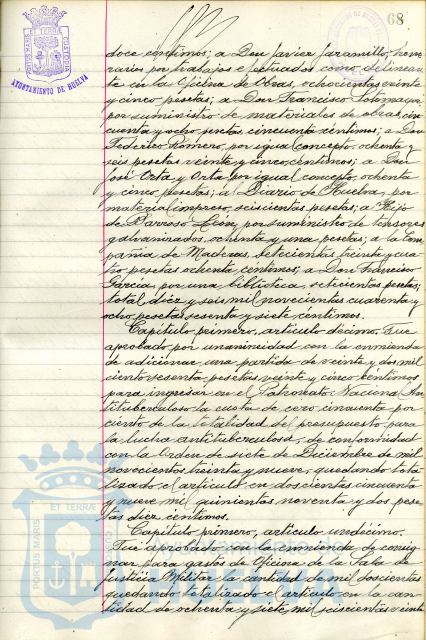 68
PORTUS MARIS ET TERRÆ CUSTODIA
AYUNTAMIENTO DE HUELVA
doce céntimos; a Don Javier Jaramillo, hono
rarios por trabajos efectuados como delinean
te en la Oficina de Obras, ochocientas veinte
y cinco pesetas; a Don Francisco
por suministro de materiales de obras, cin
cuenta y ocho pesetas cincuenta céntimos; a Don
Federico Romero, por igual concepto, ochenta y
seis pesetas veinte y cinco céntimos; a Don
José Orta y Orta por igual concepto, ochenta
y cinco pesetas; a Diario de Huelva, por
material impreso, seiscientas pesetas; a Hijo
de Barroso León, por suministro de tensores
galvanizados, ochenta y una pesetas; a la Com
pañia de Maderas, setecientas treinta y cua
tro pesetas ochenta céntimos; a Don Francisco
García, por una biblioteca, setecientas pesetas;
total diez y seis mil novecientas cuarenta y
ocho pesetas sesenta y siete céntimos.
Capítulo primero, artículo decimo. Fue
aprobado por unanimidad con la enmienda
de adicionar una partida de veinte y dos mil
ciento sesenta pesetas veinte y cinco céntimos
para ingresar en el Patronato Nacional An
tituberculoso la cuota de cero cincuenta por
ciento de la totalidad del presupuesto para
la lucha antituberculosa, de conformidad
con la Orden de siete de Diciembre de mil
novecientos treinta y nueve, quedando tota
lizado el artículo en doscientas cincuenta
y nueve mil quinientas noventa y dos pese
tas diez céntimos.
Capítulo primero, artículo undécimo.
Fue aprobado con la enmienda de consig
nar para gastos de Oficina de la Sala de
Justicia Militar la cantidad de mil doscientas
quedando totalizado el artículo en la can
tidad de ochenta y siete mil seiscientas veinte
PORTUS MARIS ET TERRÆ CUSTODIA
Ayuntamiento de
HUELVA